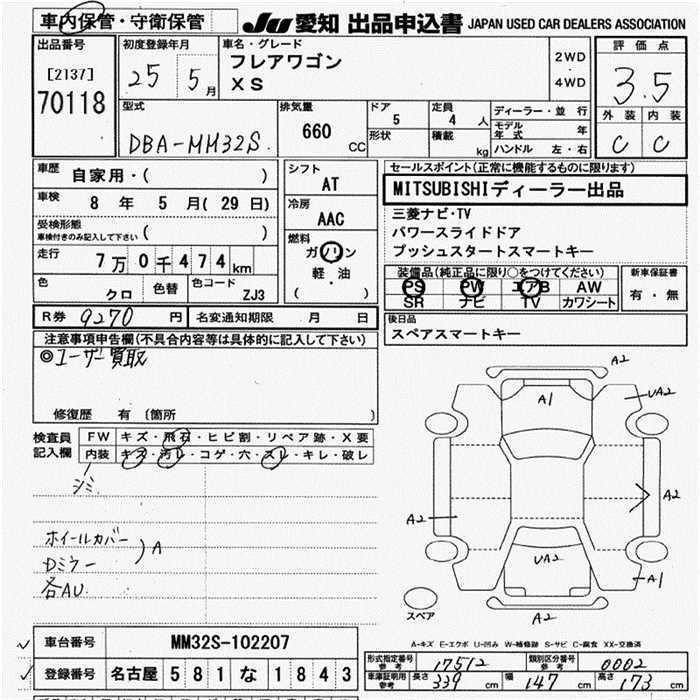 車内保管・守衛保管
JU 愛知 出品申込書 JAPAN USED CAR DEALERS ASSOCIATION
出品番号
[2137]
70118
初度登録年月
25 5月
車名・グレード
フレアワゴン
XS
2WD
・
4WD
評価点
3.5
外装 内装
C C
型式
DBA-MM32S.
排気量
660
CC
ドア
5
形状
定員
4人
積載
kg
ディーラー・並行
モデル年式 年
ハンドル 左・右
車歴
自家用・( )
車検
8年 5月(29日)
受検形態
車検付きのみ記入して下さい ( )
走行
7万0千474km
色
クロ
色替
色コード
ZJ3
シフト
AT
冷房
AAC
燃料
ガソリン
軽・油
( )
セールスポイント(正常に機能するものに限ります)
MITSUBISHIディーラー出品
三菱ナビ・TV
パワースライドドア
プッシュスタートスマートキー
装備品(純正品に限り○をつけてください)
PS PW エアB AW
SR ナビ TV カワシート
新車保証書
有・無
R券 9270円
名変通知期限 月 日
後日品
スペアスマートキー
注意事項申告欄(不具合内容等は具体的に記入して下さい)
◎ユーザー買取
修復歴 有 〔箇所 〕
検査員記入欄
FW キズ・飛石・ヒビ割・リペア跡・X要
内装 キズ・汚レ・コゲ・穴・スレ・キレ・破レ
シミ
ホイールカバー
Dミラー
A
各AU.
A2
A1
UA2
A2
A2
UA2
A1
A2
スペア
A-キズ E-エクボ U-凹み W-補修跡 S-サビ C-腐食 XX-交換済
車台番号 MM32S-102207
登録番号 名古屋 581 な 1843
形式指定番号 参考 17512
類別区分番号 参考 0002
車庫証明用 参考 長さ 339 cm 幅 147 cm 高さ 173 cm